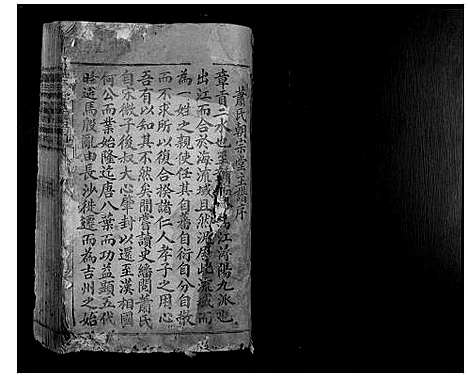 蕭氏朝宗堂主譜序
章貢二水也至 江潯陽九派也
出江而合於海流域且然況屬此 流域而
為一姓之親使任其自蕃自衍自分自散
而不求所以復合揆諸仁人孝子之用心
吾有以知其不然矣間嘗讀史繙閱蕭氏
自宋微子後叔大心肇封以還至漢相國
何公而業始隆迄唐八葉而功益顯五代
時遭馬殷亂由長沙徙遷而為吉州之始